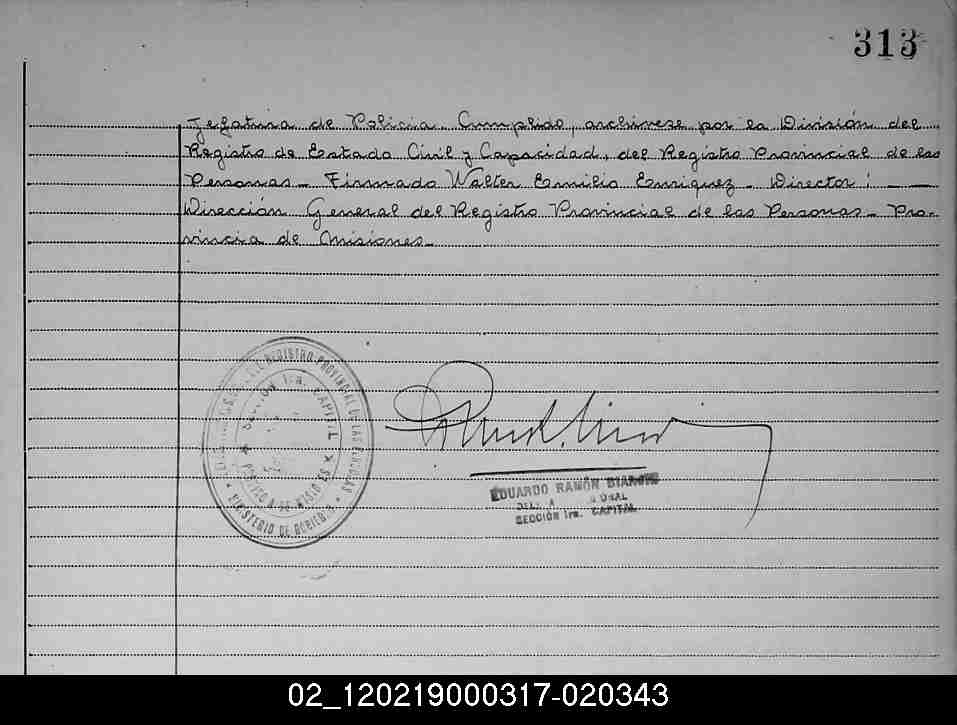 313
Jefatura de Policia. Cumplido, archivese por la División del
Registro de Estado Civil y Capacidad, del Registro Provincial de las
Personas_ Firmado Walter Emilio Enriquez_ Director; _ _
Dirección General del Registro Provincial de las Personas_ Pro-
vincia de Misiones_
REGISTRO PROVINCIAL DE LAS PERSONAS
SECCION 1ra. CAPITAL
MINISTERIO DE GOBIERNO
EDUARDO RAMÓN
SECCIÓN 1ra. CAPITAL
02_120219000317-020343